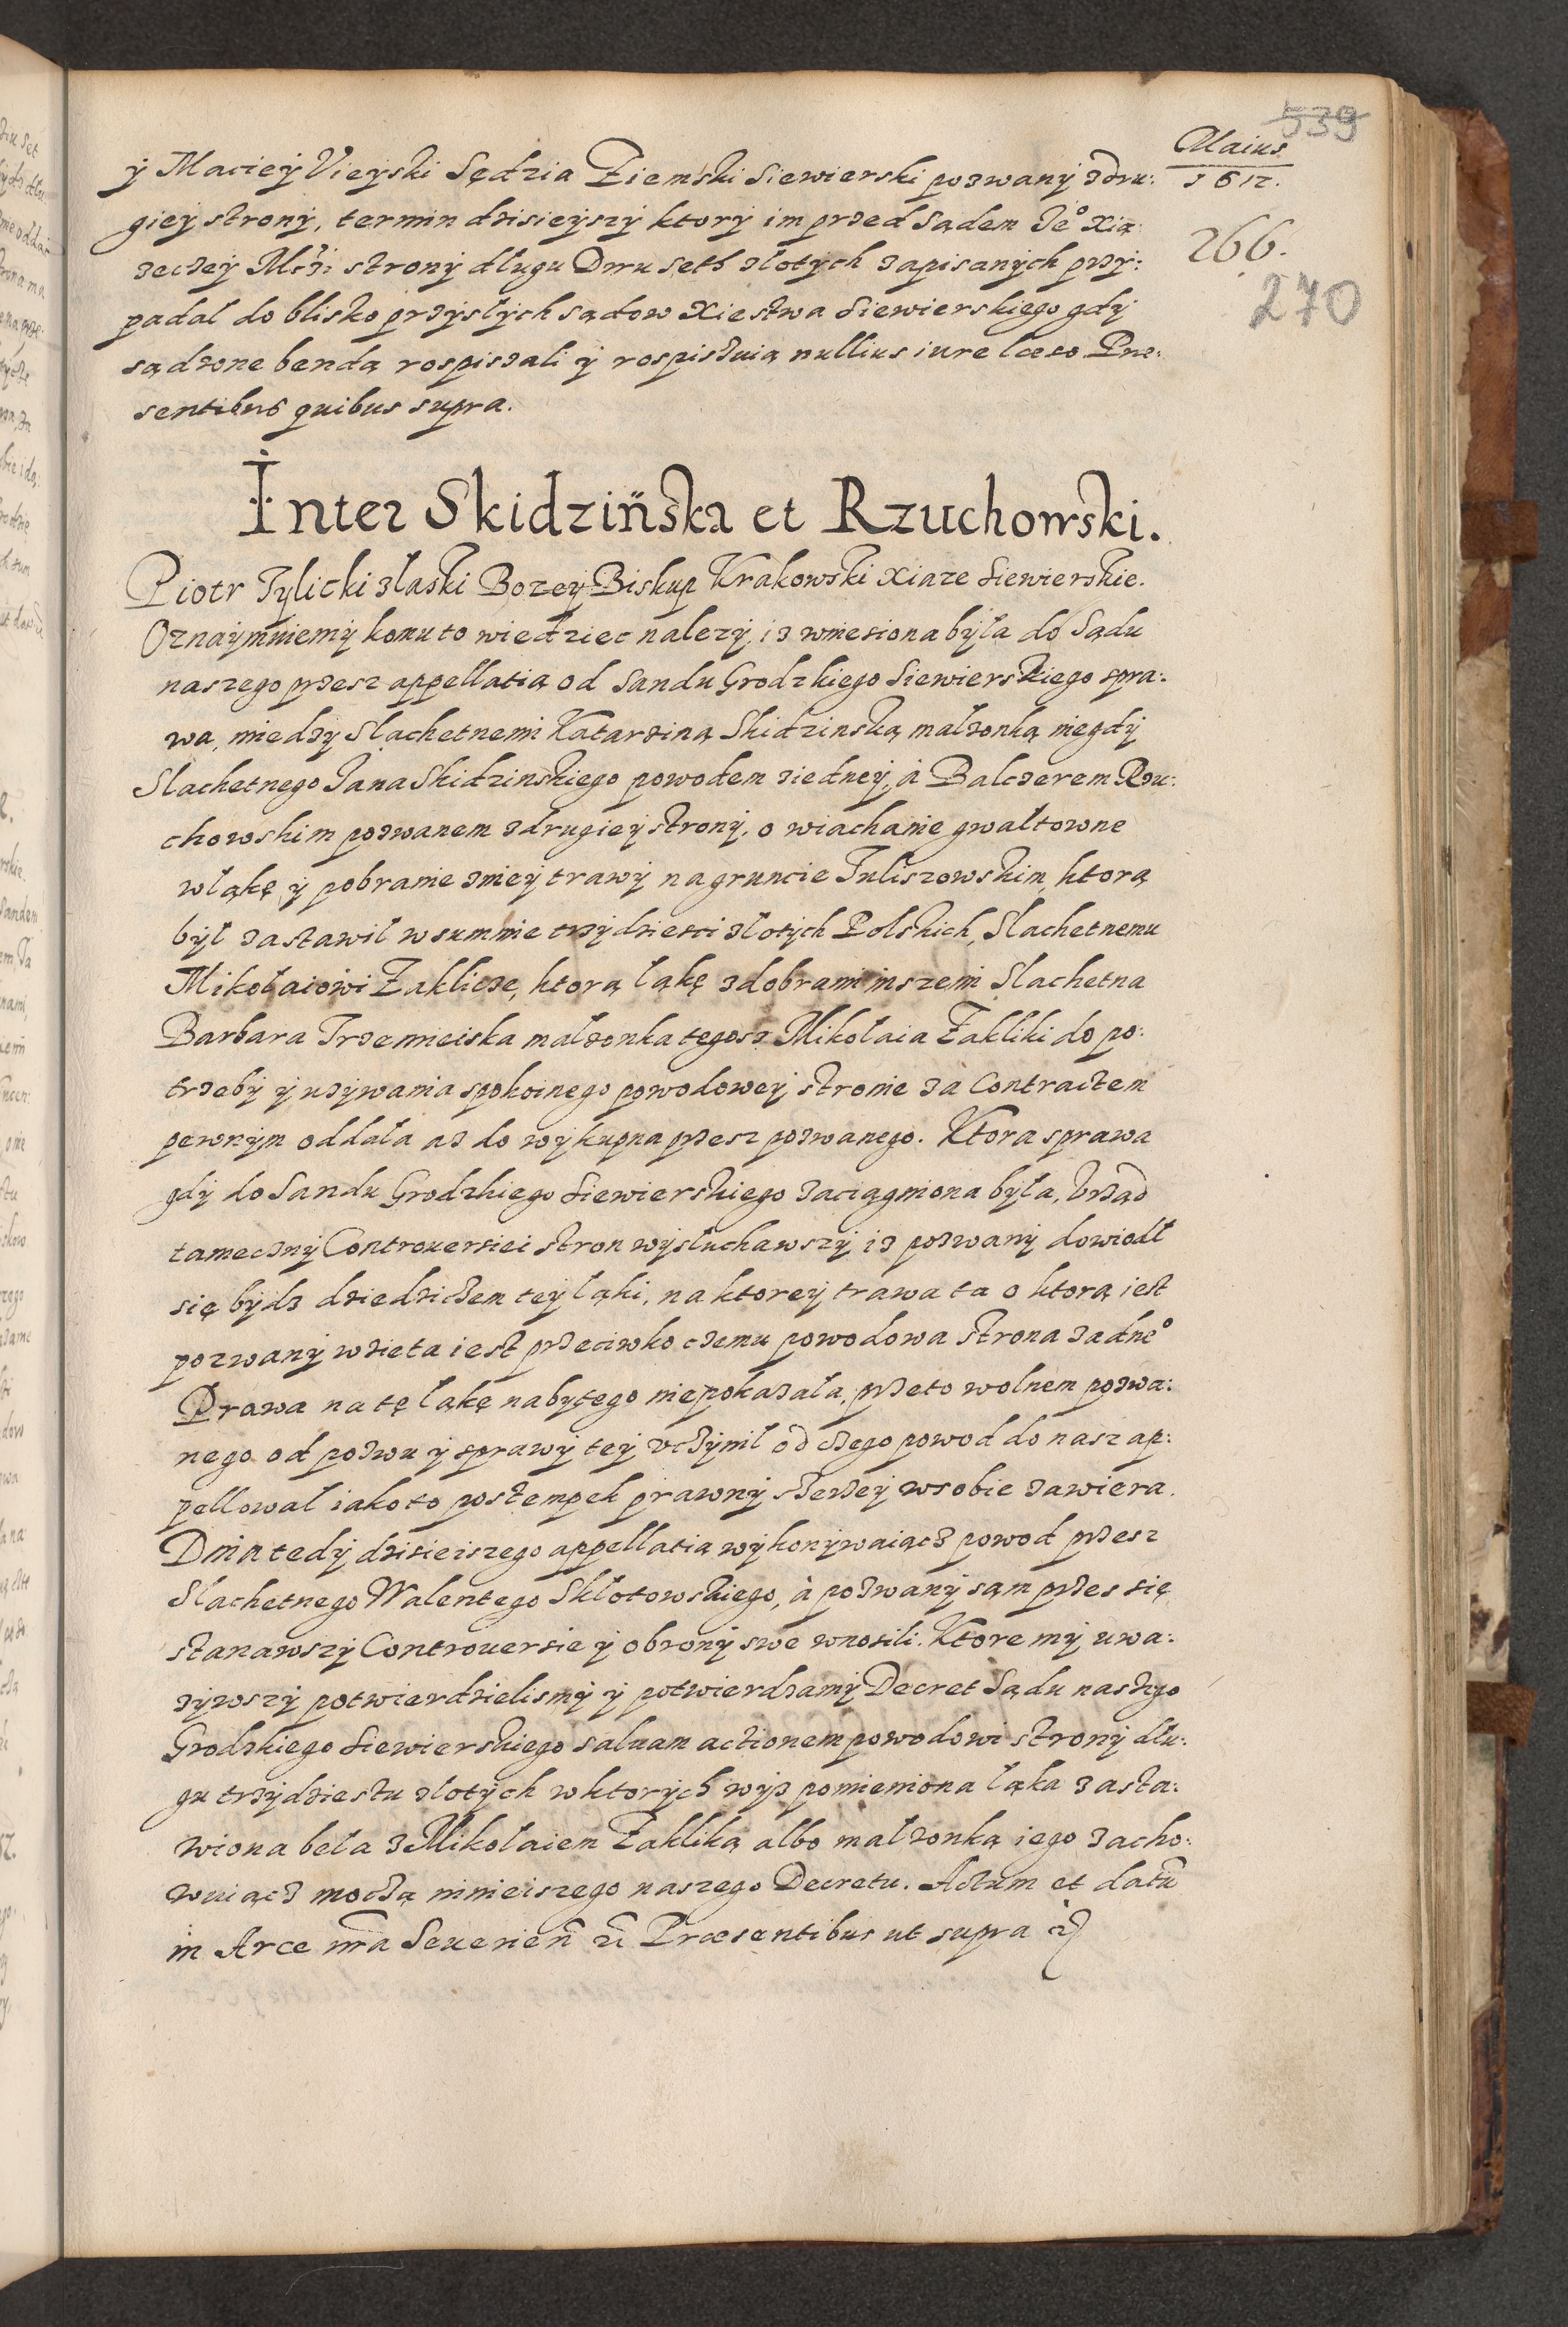 539
Maius
1612.
266.
270
ÿ Macieÿ Vieÿski Sędzia Ziemski Siewierski pozwanÿ zdru:
gieÿ stronÿ, termin dzisieÿszÿ ktorÿ im przed Sądem Je° Xią
zeczeÿ Mczi stronÿ długu Dwu Seth złotÿch zapisanÿch przÿ:
padał do blisko przÿsłÿch sądow Xiestwa Siewierskiego gdÿ
sądzone bendą rospisali ÿ rospisuią nullius iure læso. Præ:
sentibus quibus supra.
Inter Skidzińska et Rzuchowski.
Piotr Tÿlicki złaski Bozeÿ Biskup Krakowski Xiaze Siewierskie.
Oznaÿmuiemÿ komu to wiedziec nalezÿ, iz wniesiona bÿła do Sądu
naszego przesz appellatią od Sandu Grodzkiego Siewierskiego spra:
wa, miedzÿ Slachetnemi Katarziną Skidzinską małzonką niegdÿ
Slachetnego Jana Skidzinskiego powodem ziedneÿ, à Balczerem Rzu:
chowskim pozwanem zdrugieÿ stronÿ, o wiachanie gwałtowne
wląkę ÿ pobranie znieÿ trawÿ na gruncie Tuliszowskim, ktorą
bÿł zastawił wsummie trzÿdziesci złotÿch Polskich, Slachetnemu
Mikołaiowi Zaklicze, ktorą ląkę zdobrami inszemi Slachetna
Barbara Trzemeska małzonka tegosz Mikołaia Zakliki do po:
trzebÿ ÿ uzÿwania spokoinego powodoweÿ stronie za Contractem
pewnÿm oddała az do wÿkupna przesz pozwanego. Ktora sprawa
gdÿ do Sandu Grodzkiego Siewierskiego zaciągniona bÿła, Vrząd
tamecznÿ Controuersiei stron wÿsłuchawszÿ, iz pozwanÿ dowiodł
się bÿdz dziedziczem teÿ ląki, na ktoreÿ trawa ta o ktorą iest
pozwanÿ wzieta iest przeciwko czemu powodowa strona zadne°
Prawa na tę ląkę nabÿtego niepokazała, przeto wolnem pozwa:
nego od pozwu ÿ sprawÿ teÿ vczÿnił od czego powod do nasz ap:
pellował iako to postempek prawnÿ szerzeÿ wsobie zawiera.
Dnia tedÿ dzisieiszego appellatią wÿkonÿwaiącz powod przesz
Slachetnego Walentego Skłotowskiego, à pozwanÿ sąm przes się
stanawszÿ Controuersie ÿ obronÿ swe wnosili. Ktore mÿ uwa:
zÿwszÿ potwierdzielismÿ ÿ potwierdzamÿ Decret Sądu naszego
Grodzkiego Siewierskiego saluam actionem powodowi stronÿ dłu:
gu trzÿdziestu złotÿch wktorÿch wÿz pomieniona ląka zasta:
wiona beła zMikołaiem Zakliką albo małzonką iego zacho:
wuiącz moczą ninieiszego naszego Decretu. Actum et datū
in Arce nr̄a Seuerien̄ ... Præsentibus ut supra